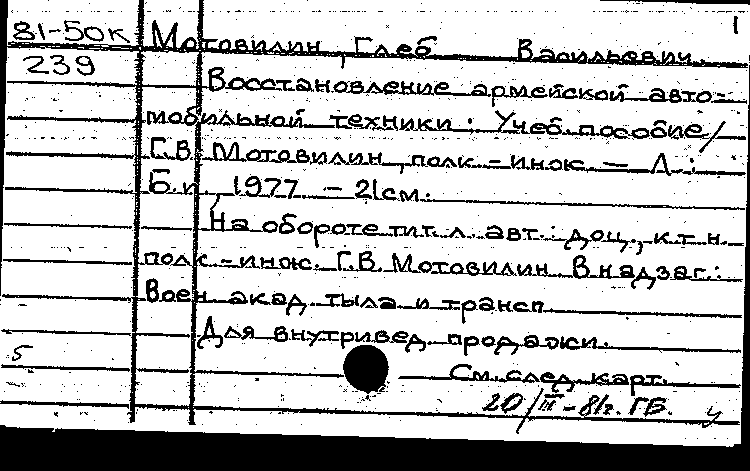 1
81-50к Мотовилин, Глеб Васильевич.
239
Восстановление армейской авто=
мобильной техники: Учеб.пособие/
Г.В. Мотовилин, полк.-инж. — Л.:
Б.и., 1977 - 21см.
На обороте тит. л. авт.: доц., к.т.н.
полк-инж. Г.В. Мотовилин В надзаг.:
Воен акад тыла и трансп
Для внутривед продажи.
5
См.след.карт.
20/III-81г. ГБ. у